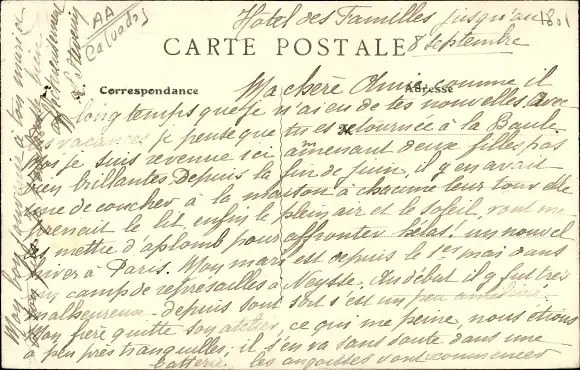 Hôtel des Familles jusqu'au
8 septembre
1801
AA
Calvados
CARTE POSTALE
Correspondance
Adresse
Ma chère Amie, comme il
y a longtemps que je n'ai eu de tes nouvelles. Avec
les vacances je pense que tu es retournée à la Baule.
Moi je suis revenue ici amenant deux filles pas
bien brillantes. Depuis la fin de juin, il y en avait
une de couchée à la maison à chacune leur tour elle
prenait le lit, enfin le plein air et le soleil, vont me
les mettre d'aplomb pour affronter hélas. un nouvel
hiver à Paris. Mon mari est depuis le 1er mai dans
un camp de représailles à Neysse. Au début il y fut très
malheureux. depuis son sort s'est un peu amélioré.
Mon frère quitte son atelier, ce qui me peine, nous étions
à peu près tranquilles; il s'en va sans doute dans une
batterie. les angoisses vont commencer
Mes bons souvenirs à ton mari et